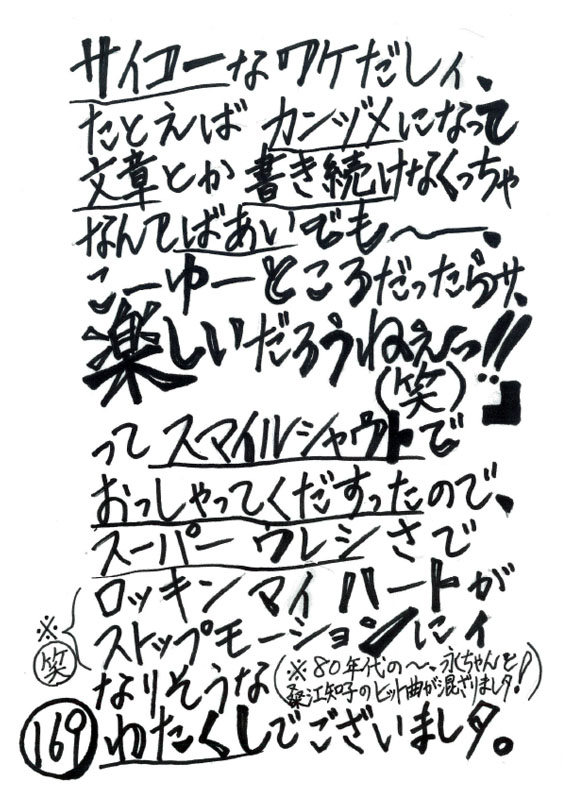 サイコーなワケだしィ、
たとえば カンヅメになって
文章とか 書き続けなくっちゃ
なんてばあいでも〜ー、
こーゆーところだったらサ、
楽しいだろうねぇ〜っ!!
(笑)…」
って スマイルシャウトで
おっしゃってくだすったので、
スーパー ウレシさで
ロッキン マイ ハートが
ストップモーションにィ
なりそうな
(※80年代の〜、永ちゃんと
桑江知子のヒット曲が混ざりまシタ!)
※笑
わたくしでございまシタ。
169